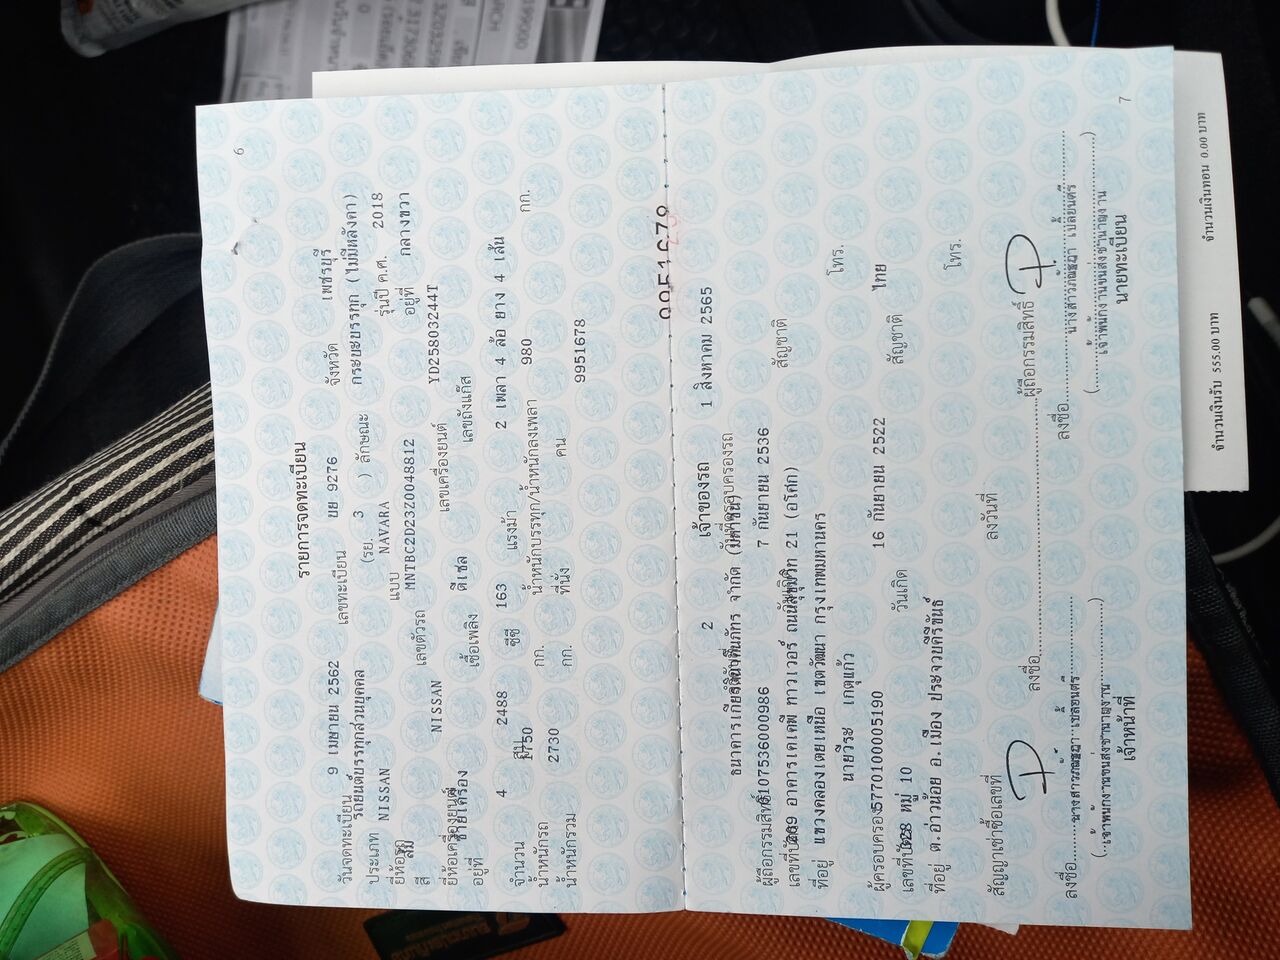 6
รายการจดทะเบียน
วันจดทะเบียน 9 เมษายน 2562 เลขทะเบียน บย 9276 จังหวัด เพชรบุรี
ประเภท รถยนต์บรรทุกส่วนบุคคล (รย. 3 ) ลักษณะ กระบะบรรทุก (ไม่มีหลังคา)
ยี่ห้อรถ NISSAN แบบ NAVARA รุ่นปี ค.ศ. 2018
สี ส้ม เลขตัวรถ MNTBC2D23Z0048812 อยู่ที่ กลางขวา
ยี่ห้อเครื่องยนต์ NISSAN เลขเครื่องยนต์ YD25803244T
อยู่ที่ ซ้ายเครื่อง เชื้อเพลิง ดีเซล เลขถังแก๊ส
จำนวน 4 สูบ 2488 ซีซี 163 แรงม้า 2 เพลา 4 ล้อ ยาง 4 เส้น
น้ำหนักรถ 1750 กก. น้ำหนักบรรทุก/น้ำหนักลงเพลา 980 กก.
น้ำหนักรวม 2730 กก. ที่นั่ง คน 9951678
9951678
เจ้าของรถ
ลำดับที่ 2 วันที่ครอบครองรถ 1 สิงหาคม 2565
ผู้ถือกรรมสิทธิ์ ธนาคารเกียรตินาคินภัทร จำกัด (มหาชน)
เลขที่บัตร 0107536000986 วันเกิด 7 กันยายน 2536 สัญชาติ
ที่อยู่ 209 อาคารเคเคพี ทาวเวอร์ ถนนสุขุมวิท 21 (อโศก)
แขวงคลองเตยเหนือ เขตวัฒนา กรุงเทพมหานคร โทร.
ผู้ครอบครอง นายวีระ เกตุแก้ว
เลขที่บัตร 5770100005190 วันเกิด 16 กันยายน 2522 สัญชาติ ไทย
ที่อยู่ 628 หมู่ 10
ต.อ่าวน้อย อ.เมือง ประจวบคีรีขันธ์ โทร.
สัญญาเช่าซื้อเลขที่ ลงวันที่
ลงชื่อ ผู้ถือกรรมสิทธิ์
ลงชื่อ ลงชื่อ
(เจ้าพนักงานขนส่งชำนาญงาน) (เจ้าพนักงานขนส่งชำนาญงาน)
เจ้าหน้าที่ นายทะเบียน
7
จำนวนเงินรับ 555.00 บาท จำนวนเงินทอน 0.00 บาท